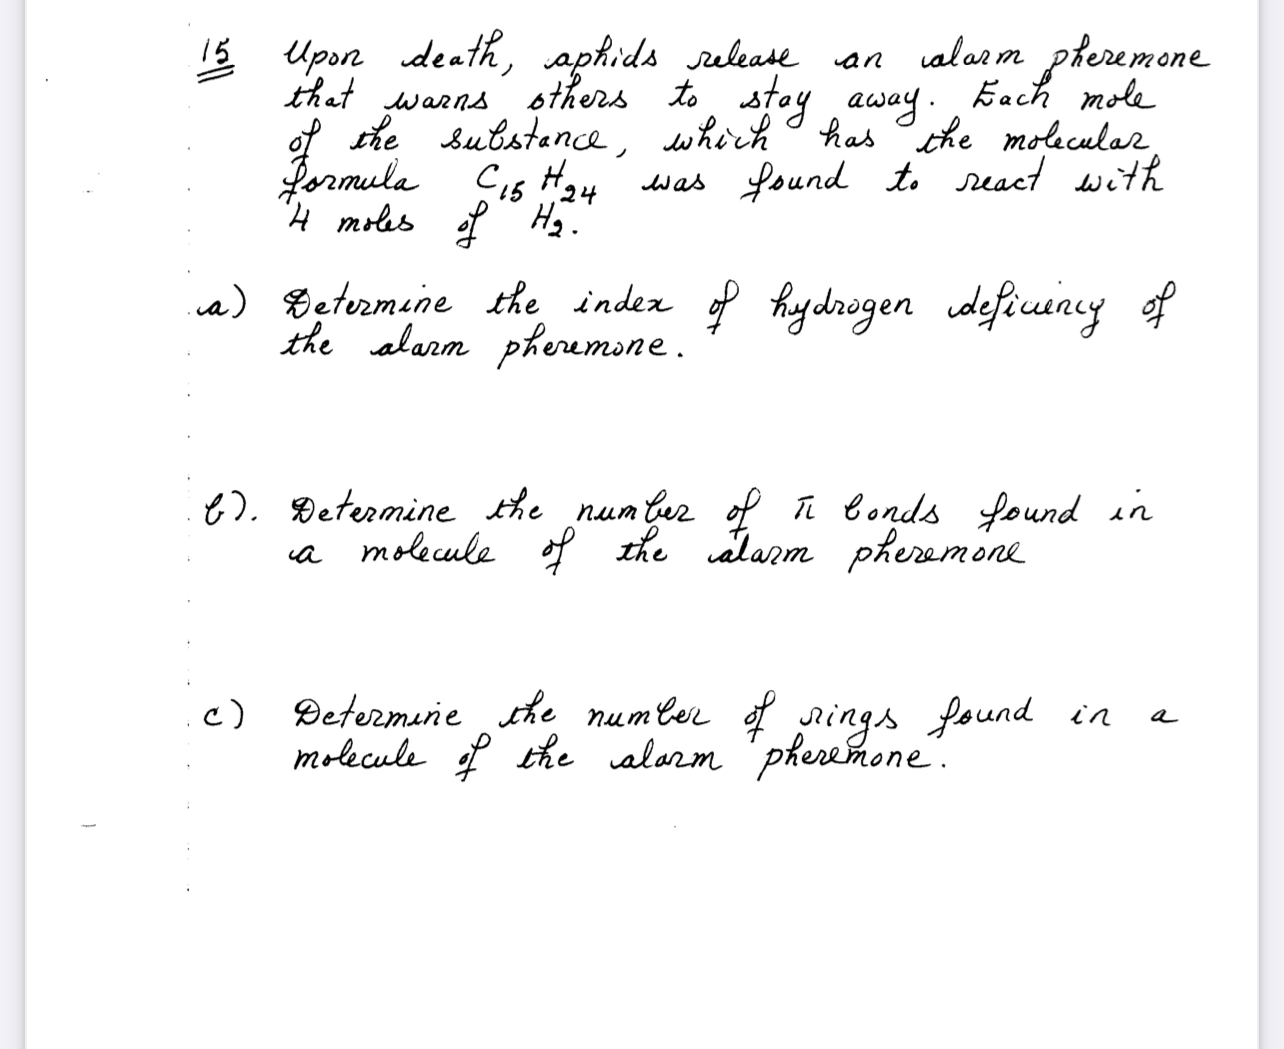 15 Upon death, aphids release an alarm pheremone
that warns others to stay away. Each mole
of the substance, which has the molecular
formula C15 H24 was found to react with
4 moles of H2.
a) Determine the index of hydrogen deficiency of
the alarm pheremone.
b). Determine the number of π bonds found in
a molecule of the alarm pheremone
c) Determine the number of rings found in a
molecule of the alarm pheremone.